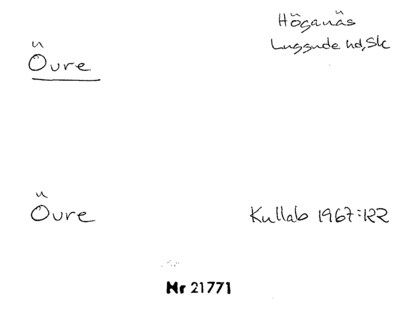 Höganäs
Luggude hd, Sk
Öure
Öure
Kullab 1967:122
Nr 21771